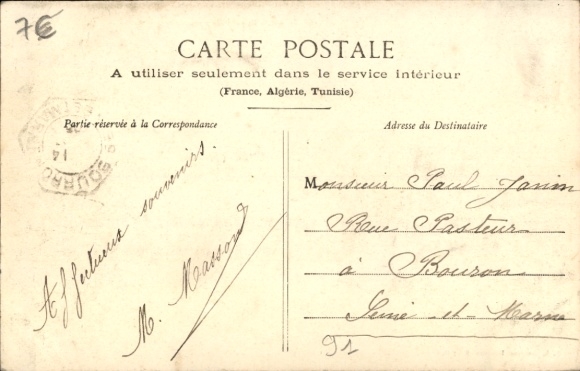 7€
CARTE POSTALE
A utiliser seulement dans le service intérieur
(France, Algérie, Tunisie)
Partie réservée à la Correspondance
Adresse du Destinataire
Affectueux souvenirs.
M. Masson
Monsieur Paul Janin
Rue Pasteur
à Bouron
Seine-et-Marne
91
14